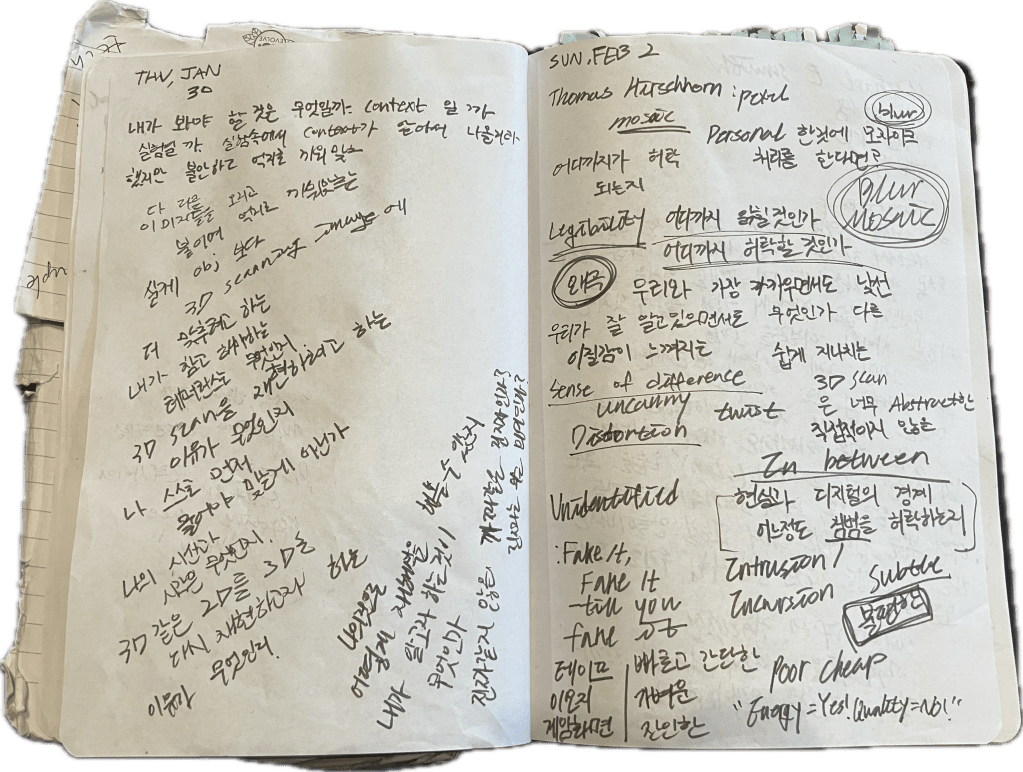 THU, JAN
30
내가 봐야 할 것은 무엇일까? Context 일까
실험일까 실험속에서 Context가 살아서 나올거라
했지만 불안하고 억지로 끼워 맞춘
다 다른
이미지들을 오리고 억지로
붙이며
실제 obj 보다
3D scanning image에
더 맞추려고 하는
내가 참고
레퍼런스는 무엇인지
3D scan을 재현하려고 하는
이유가 무엇인지
나 스스로 먼저
물어야 맞는게 아닌가
나의 시선과
시각은 무엇인지.
3D 같은 2D를 3D로
다시 재현하고자 하는
이유가 무엇인지.
어떠한 이미지를
내가 직접 재해석을
하고자 하는것이
무엇인가
진자같지 않은
SUN, FEB 2
Thomas Hirschhorn : pixel
mosaic
blur
Personal 한것에 모자이크
처리를 한다면?
어디까지가 허락
되는지
Blur
Mosaic
Legibility
어디까지 읽힐것인가
어디까지 허락할 것인가
왜곡
우리와 가장 가까우면서도 낯선
우리가 잘 알고있으면서도 무엇인가 다른
이질감이 느껴지는 쉽게 지나치는
Sense of difference
3D scan
uncanny twist
은 너무 Abstract한
Distortion
직접적이지 않은
In between
Unidentified
현실과 디지털의 경계
어느정도 침범을 허락하는지
: Fake it,
Fake it
till you
fake it
Intrusion /
Incursion
Subtle
불편한
테이프
이오지
게임화면
빠르고 간단한
가벼운
잔인한
Poor cheap
"Energy = Yes! Quality = No!"